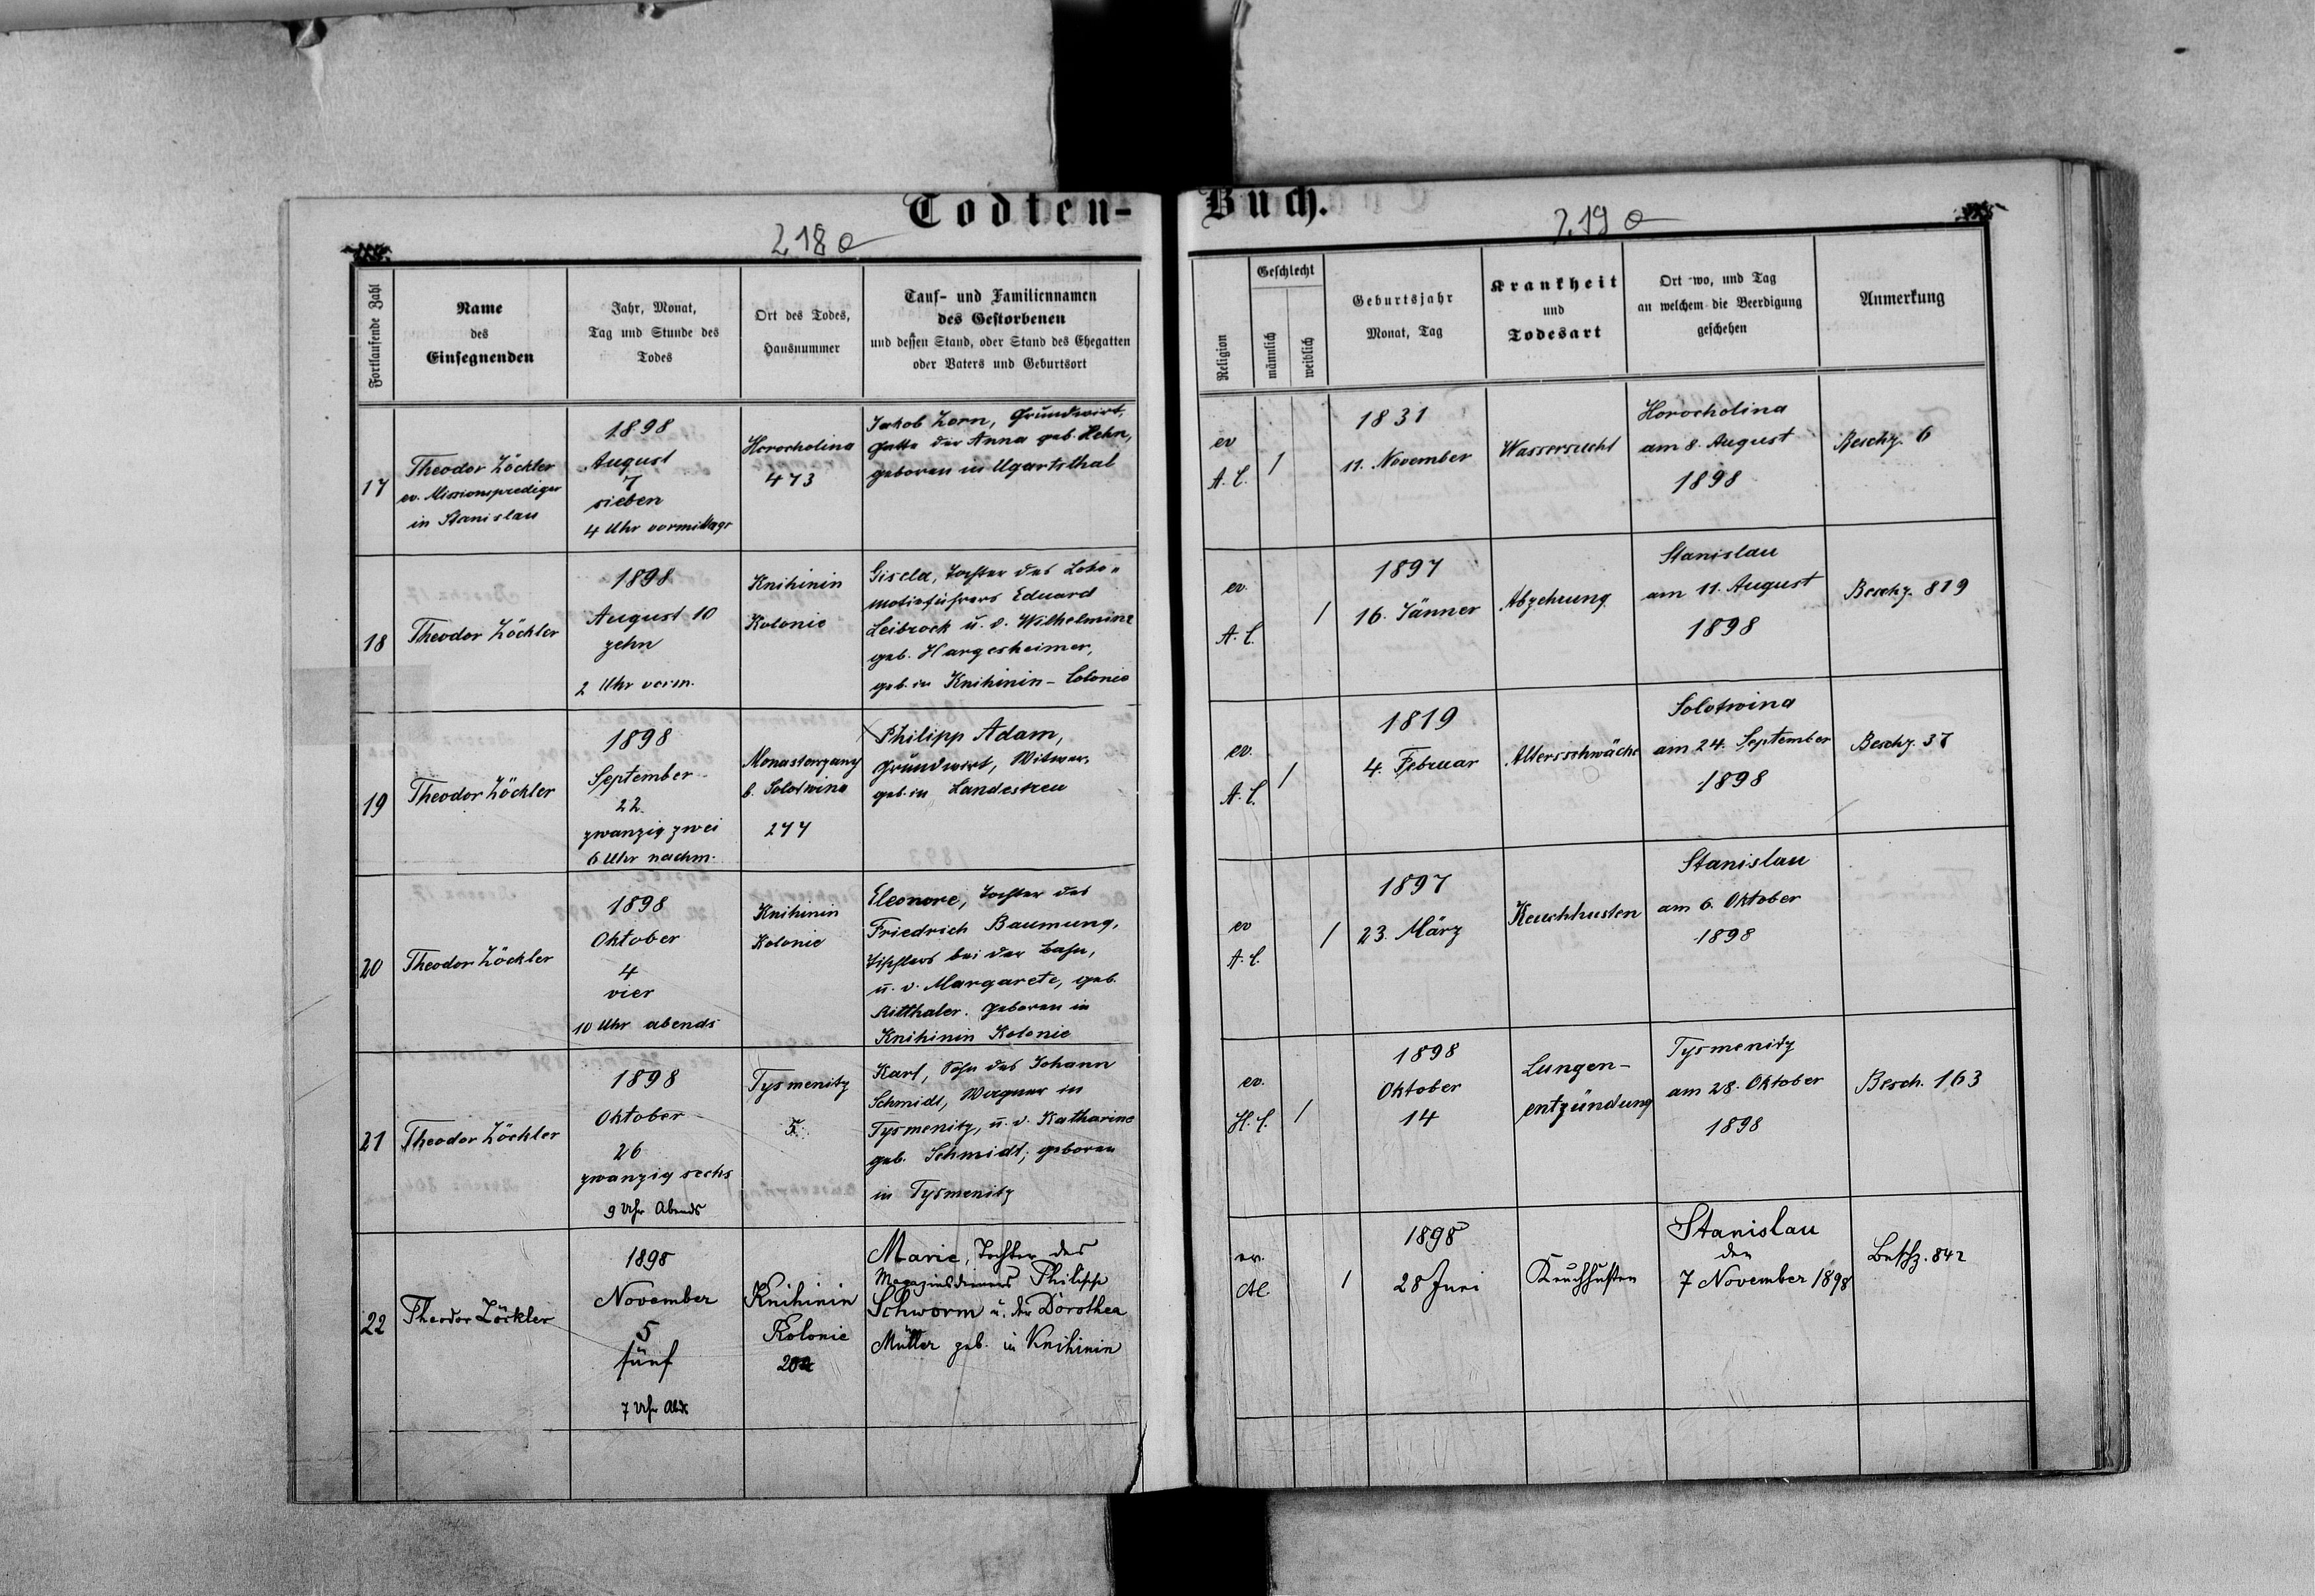 Todten-
Buch.
218a
219a
Fortlaufende Zahl
Name
des
Einsegnenden
Jahr, Monat,
Tag und Stunde des
Todes
Ort des Todes,
Hausnummer
Tauf- und Familiennamen
des Gestorbenen
und dessen Stand, oder Stand des Ehegatten
oder Vaters und Geburtsort
Religion
Geschlecht
männlich
weiblich
Geburtsjahr
Monat, Tag
Krankheit
und
Todesart
Ort wo, und Tag
an welchem die Beerdigung
geschehen
Anmerkung
17
Theodor Zöckler
ev. Missionsprediger
in Stanislau
1898
August
7
sieben
4 Uhr vormittags
Horocholina
473
Jakob Zorn, Grundwirt,
Gatte der Anna geb. Hehn,
geboren in Ugartsthal
ev
A. C.
1
1831
11. November
Wassersucht
Horocholina
am 8. August
1898
Beschz. 6
18
Theodor Zöckler
1898
August 10
zehn
2 Uhr vorm.
Knihinin
Kolonie
Gisela, Tochter des Loko-
motivführers Eduard
Leibrock u. d. Wilhelmine
geb. Hargesheimer,
geb. in Knihinin - Colonie
ev.
A. C.
1
1897
16. Jänner
Abzehrung
Stanislau
am 11. August
1898
Beschz. 819
19
Theodor Zöckler
1898
September
22.
zwanzig zwei
6 Uhr nachm.
b. Solotwina
277
Philipp Adam,
Grundwirt, Witwer,
geb. in Landestreu
ev.
A. C.
1
1819
4. Februar
Altersschwäche
Solotwina
am 24. September
1898
Beschz. 37
20
Theodor Zöckler
1898
Oktober
4
vier
10 Uhr abends
Knihinin
Kolonie
Eleonore, Tochter des
Friedrich Baumung,
Tischlers bei der Bahn,
u. d. Margarete, geb.
Ritthaler. Geboren in
Knihinin Kolonie
ev
A. C.
1
1897
23. März
Keuchhusten
Stanislau
am 6. Oktober
1898
21
Theodor Zöckler
1898
Oktober
26
zwanzig sechs
9 Uhr Abends
Tysmenitz
5.
Karl, Sohn des Johann
Schmidt, Wagner in
Tysmenitz, u. d. Katharine
geb. Schmidt; geboren
in Tysmenitz
ev.
H. C.
1
1898
Oktober
14
Lungen-
entzündung
Tysmenitz
am 28. Oktober
1898
Besch. 163
22
Theodor Zöckler
1898
November
5
fünf
7 Uhr
Knihinin
Kolonie
Marie, Tochter des
Magazinsdieners Philipp
Schworm u. der Dorothea
Müller geb. in Knihinin
ev.
AC.
1
1898
28 Juni
Keuchhusten
Stanislau
den
7 November 1898
Beschz. 842